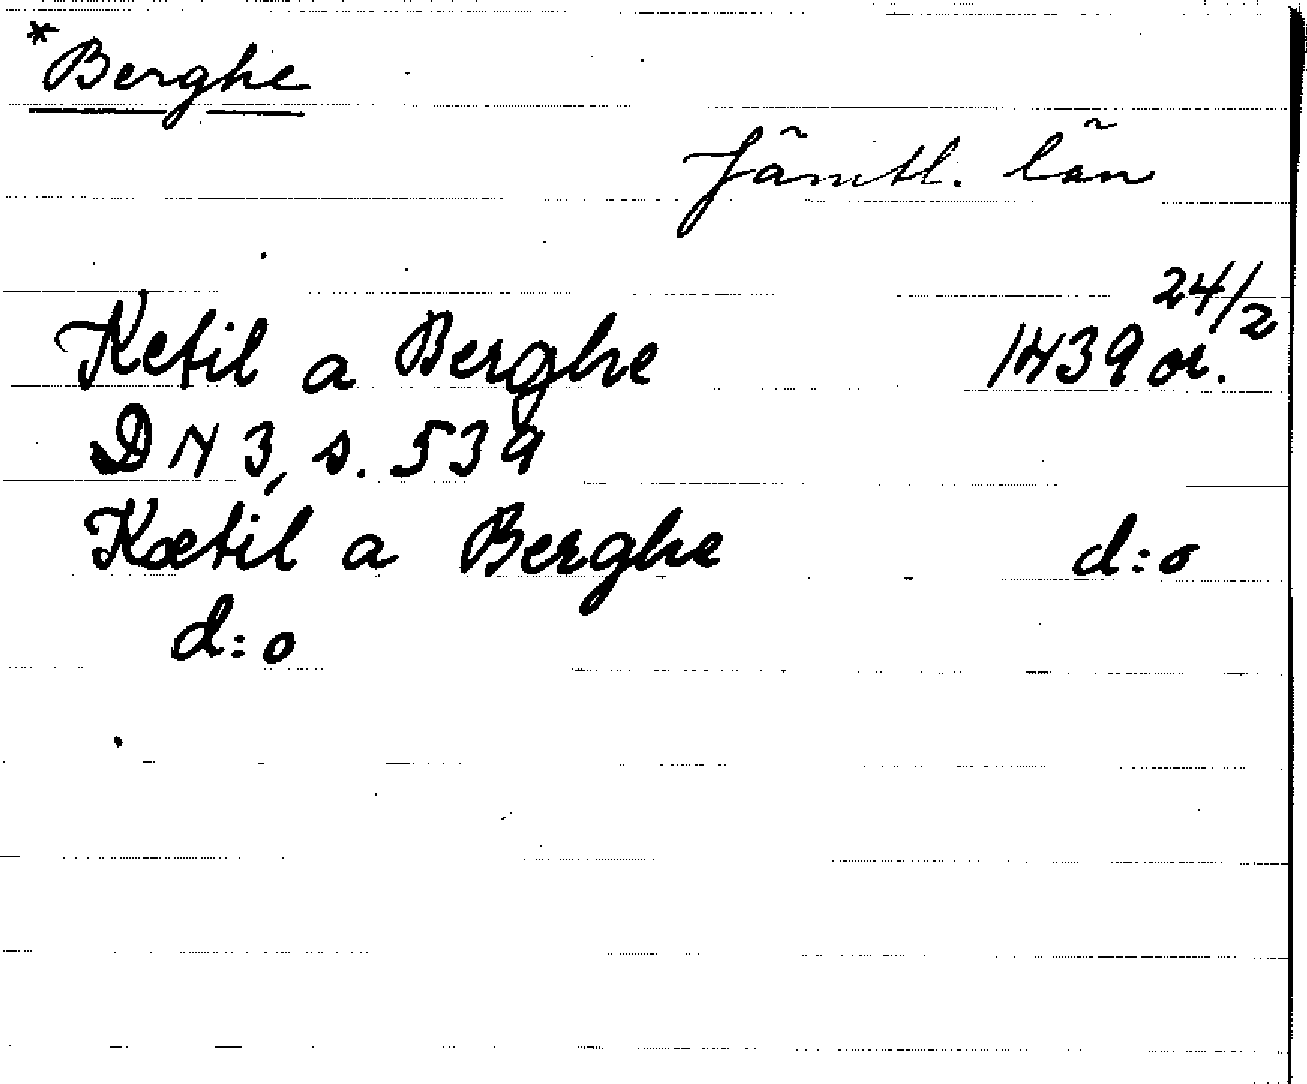 *Berghe
Jämtl. län
Ketil a Berghe 1439 24/2 or.
DN 3, s. 539
Kætil a Berghe d:o
d:o